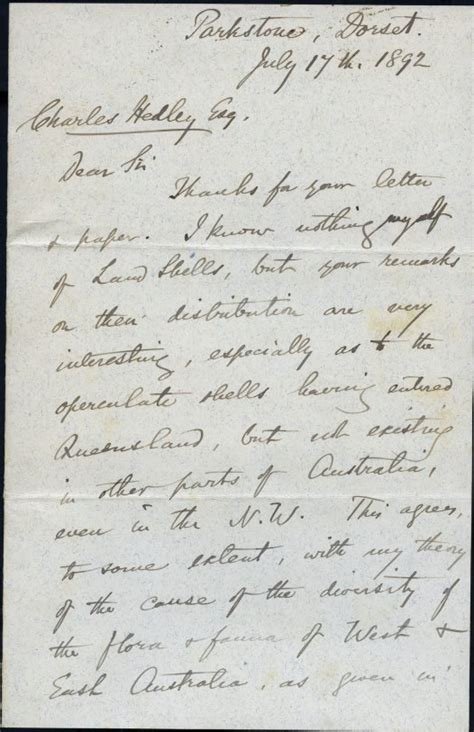 Parkstone, Dorset.
July 17th. 1892
Charles Hedley Esq.
Dear Sir
Thanks for your letter
& paper. I know nothing myself
of Land Shells, but your remarks
on their distribution are very
interesting, especially as to the
operculate shells having entered
Queensland, but not existing
in other parts of Australia,
even in the N.W. This agrees,
to some extent, with my theory
of the cause of the diversity of
the flora & fauna of West &
East Australia, as given in